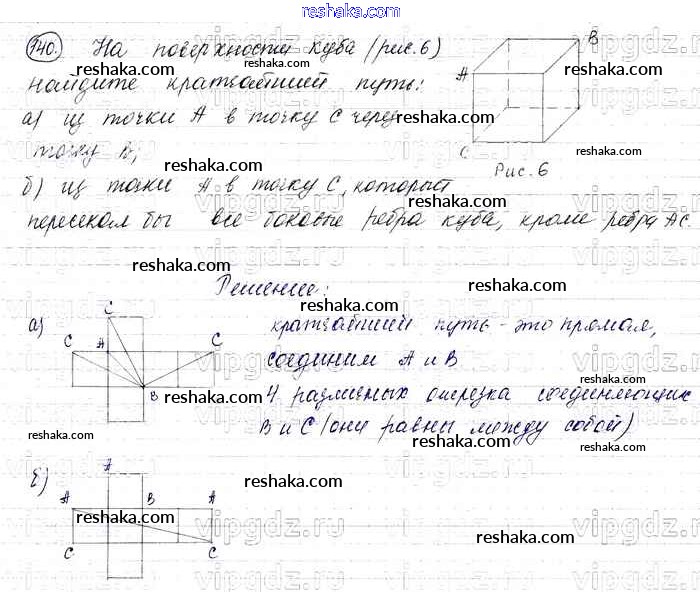 reshaka.com
140. На поверхности куба (рис. 6)
reshaka.com
найдите кратчайший путь:
а) из точки А в точку С через
точку В;
reshaka.com
б) из точки А в точку С, который
пересекал бы все боковые ребра куба, кроме ребра АС.
B
A
reshaka.com
C
Рис. 6
reshaka.com
Решение:
reshaka.com
а)
C
C
A
C
B
reshaka.com
reshaka.com
кратчайший путь - это прямая,
соединим А и В
reshaka.com
4 различных отрезка соединяющих
В и С (они равны между собой)
reshaka.com
reshaka.com
б)
A
A
B
A
C
C
reshaka.com
reshaka.com
reshaka.com
vipgdz.ru